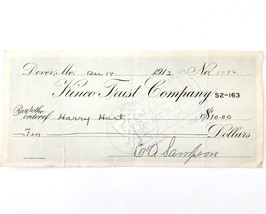 Dover, Mo. Dec 14 1912 No.
Kineo Trust Company 52-163
Pay to the
order of Harry Hart $10.00
Ten Dollars
E A Sampson